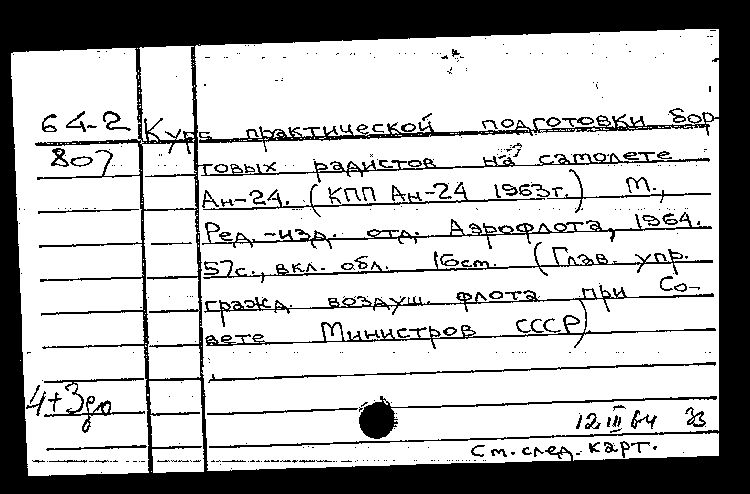 64-2 Курс практической подготовки бор-
807 товых радистов на самолете
Ан-24. (КПП Ан-24 1963г.) М.,
Ред.-изд. отд. Аэрофлота, 1964.
57с., вкл. обл. 16см. (Глав. упр.
гражд. воздуш. флота при Со-
вете Министров СССР)
12 III 64
См. след. карт.